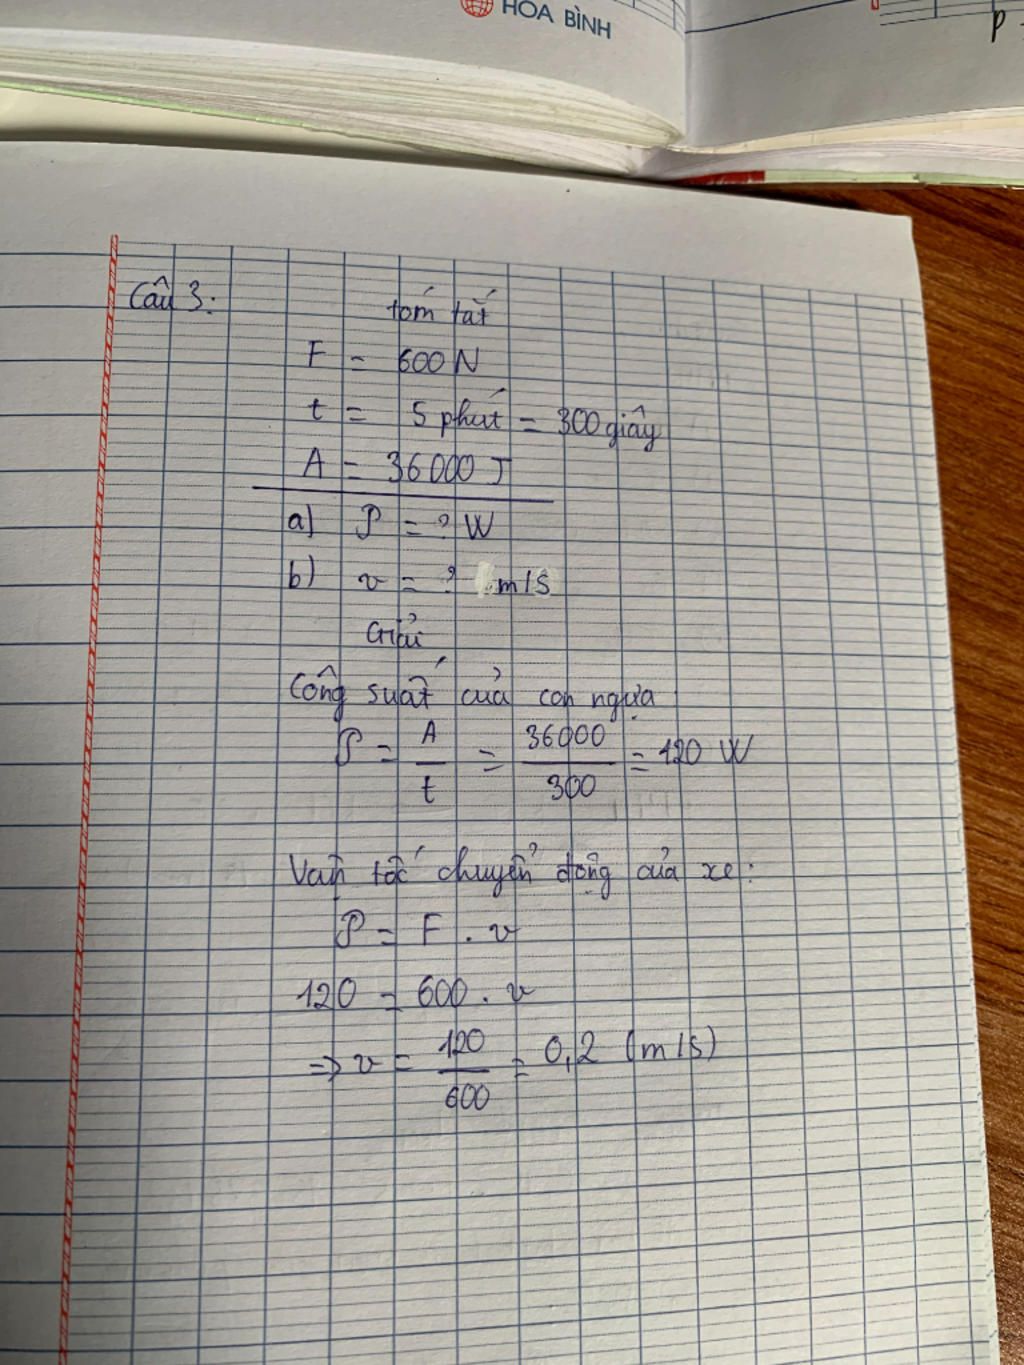 HÒA BÌNH
p
Câu 3:
tóm tắt
F = 600 N
t = 5 phút = 300 giây
A = 36000 J
a) P = ? W
b) v = ? m/s
Giải
Công suất của con ngựa
P = A/t = 36000/300 = 120 W
Vận tốc chuyển động của xe:
P = F . v
120 = 600 . v
=> v = 120/600 = 0,2 (m/s)